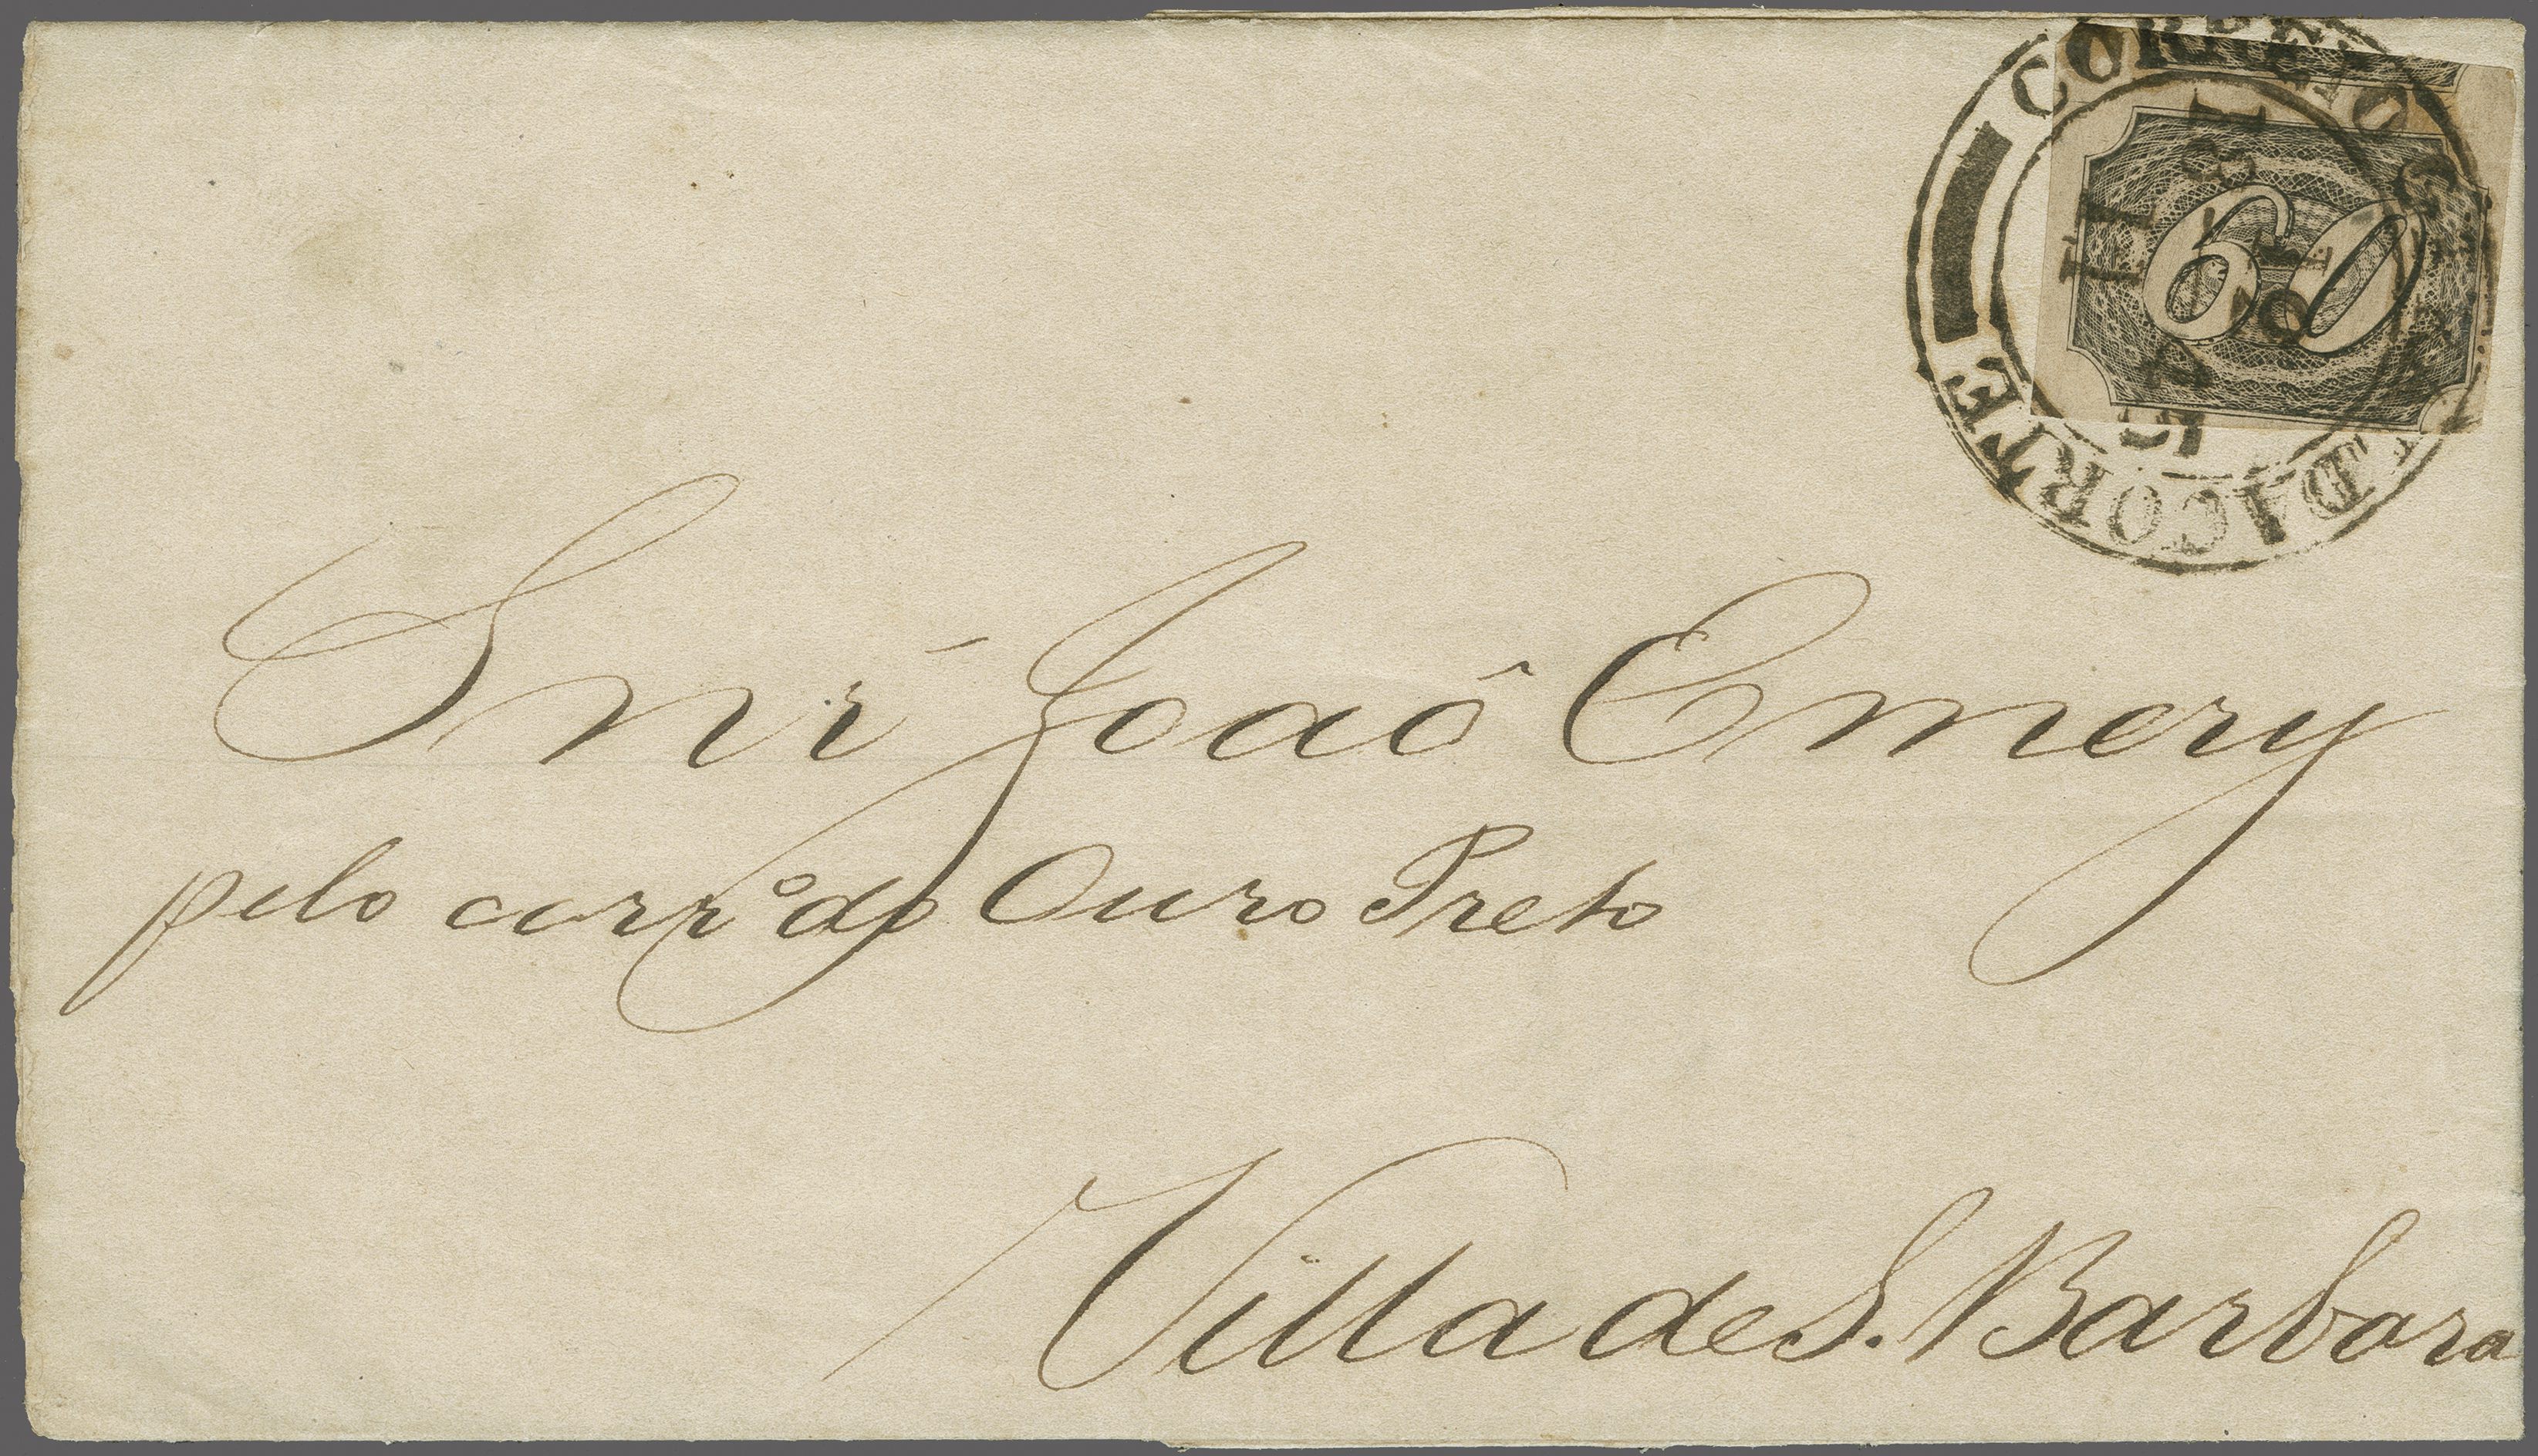 CORREIO GERAL DA CORTE
60
Snr João Emery
pelo corro do Ouro Preto
Villa de S. Barbara